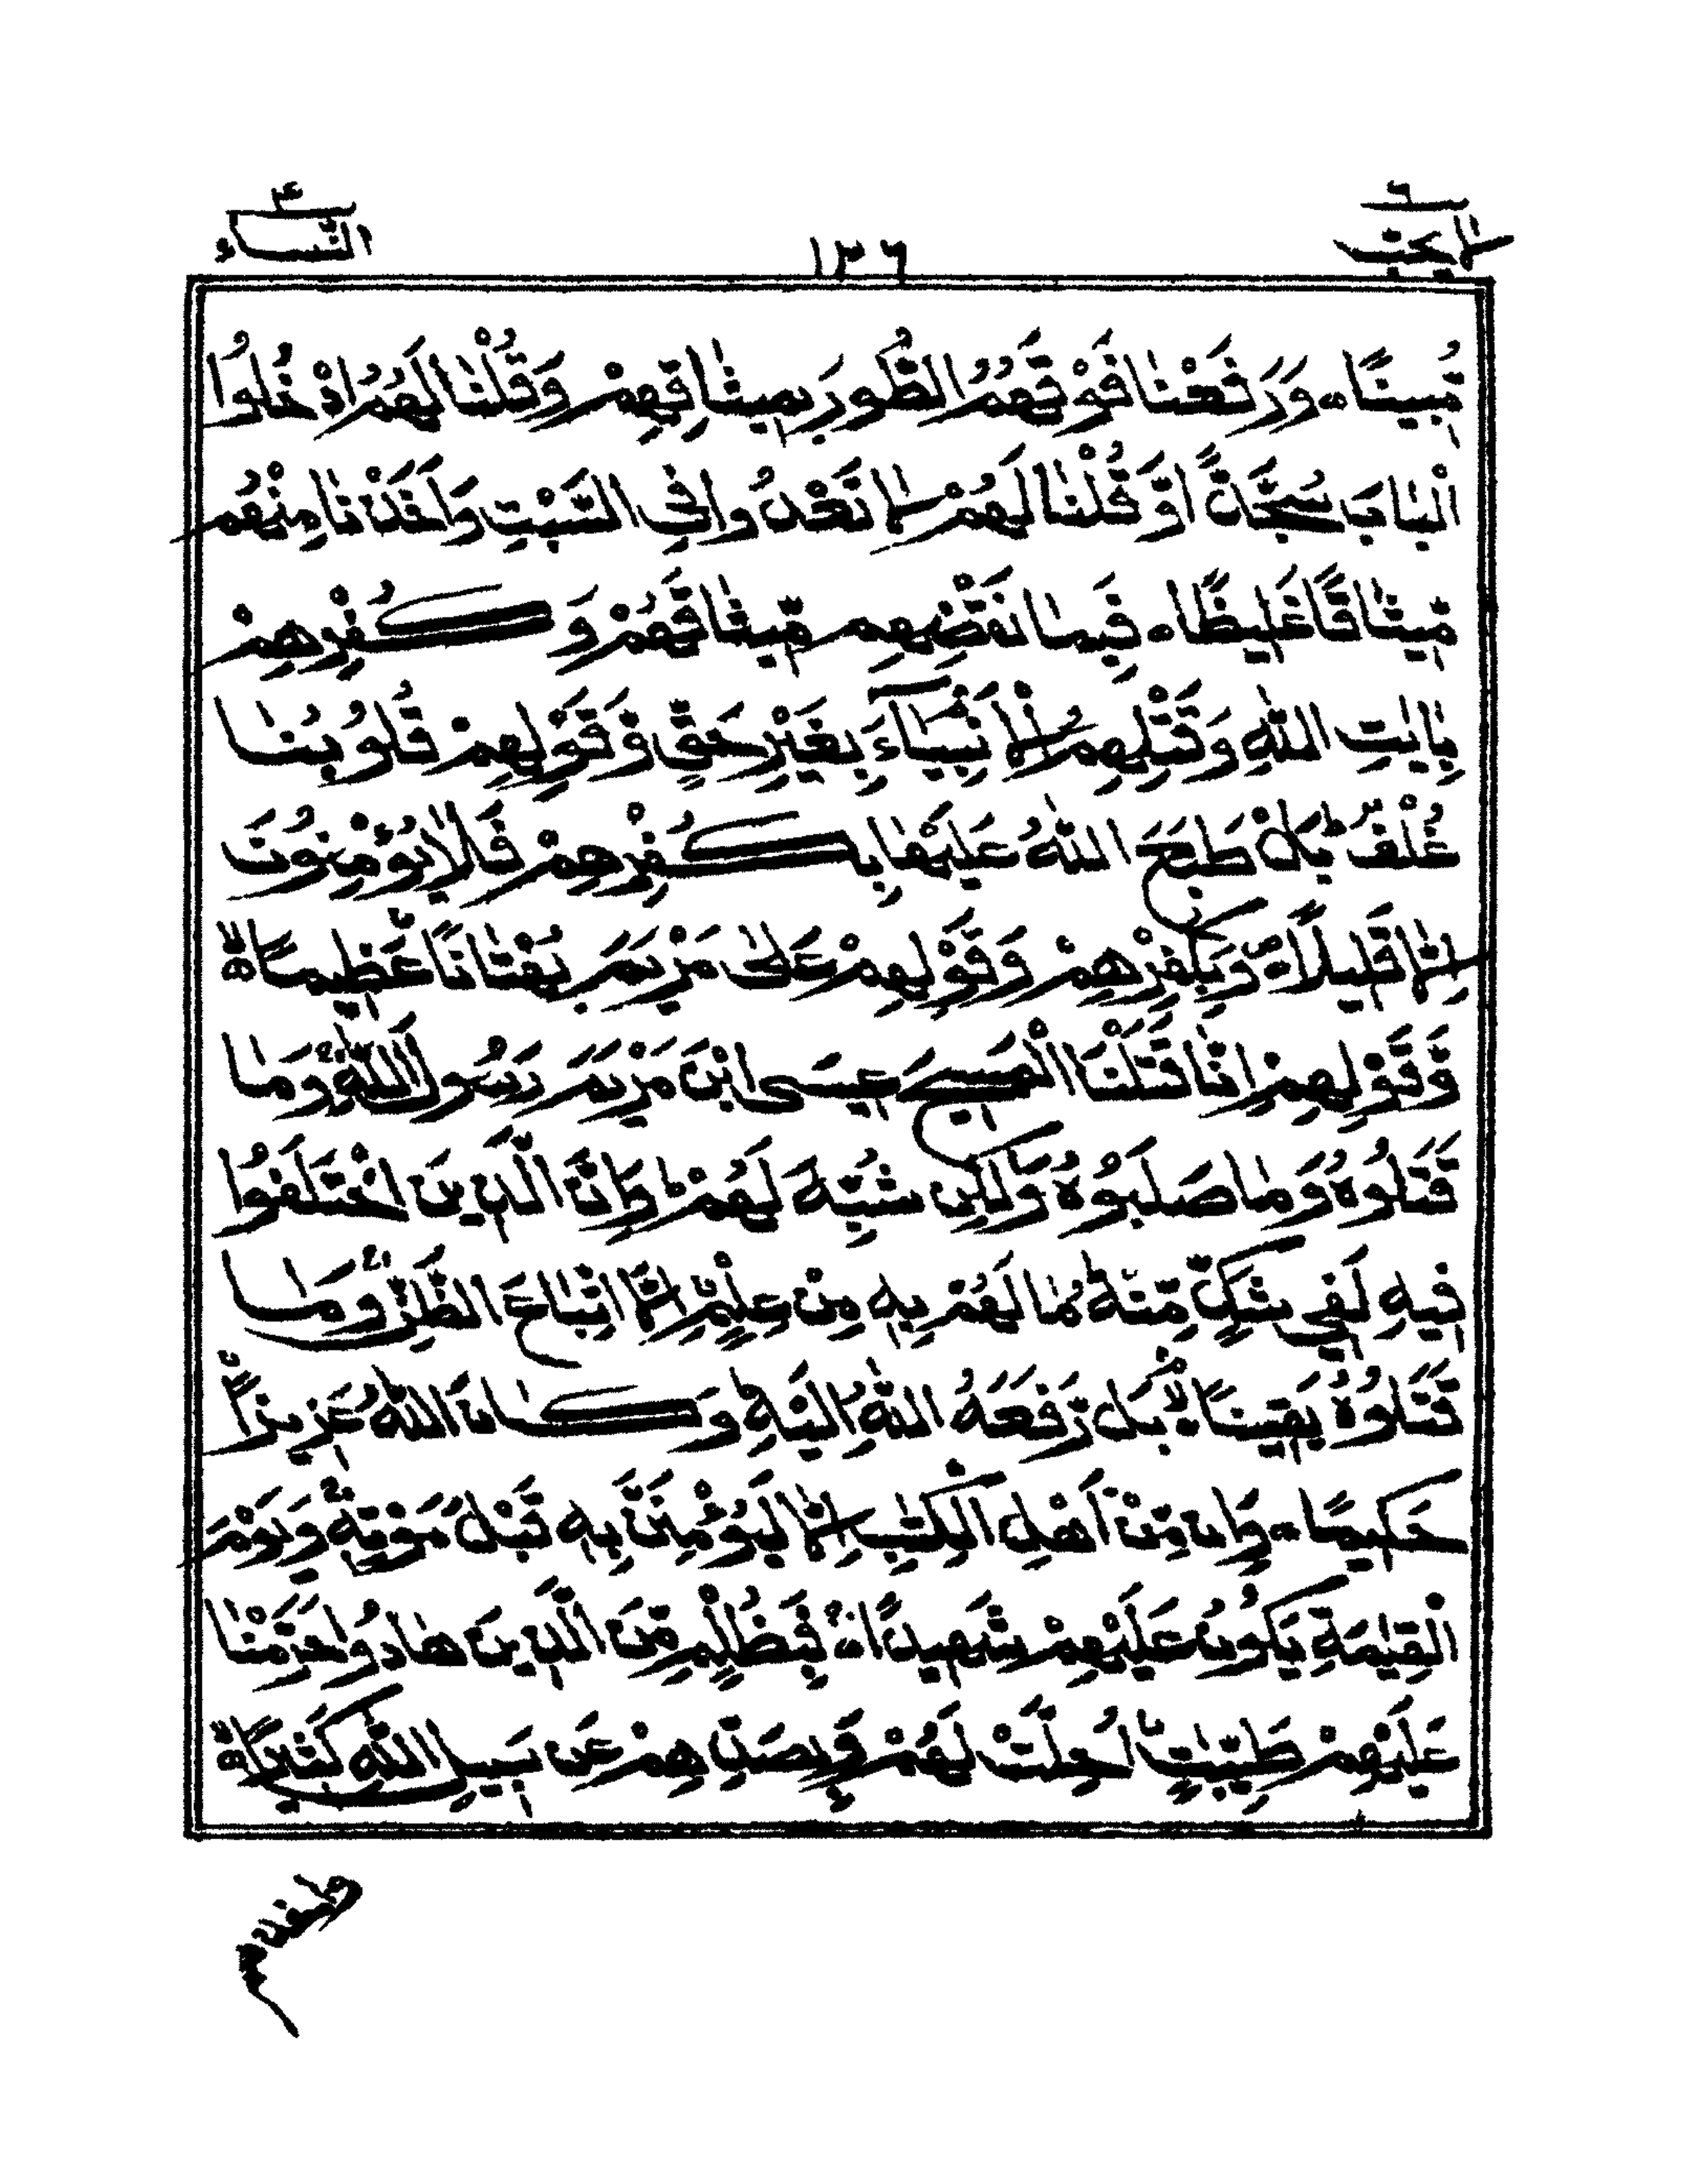 ٦
لا يحب
١٣٦
٤
النساء
مُّبِينًا ۝ وَرَفَعْنَا فَوْقَهُمُ الطُّورَ بِمِيثَاقِهِمْ وَقُلْنَا لَهُمُ ادْخُلُوا
الْبَابَ سُجَّدًا وَّقُلْنَا لَهُمْ لَا تَعْدُوا فِي السَّبْتِ وَأَخَذْنَا مِنْهُم
مِّيثَاقًا غَلِيظًا ۝ فَبِمَا نَقْضِهِم مِّيثَاقَهُمْ وَكُفْرِهِمْ
بِآيٰتِ اللّٰهِ وَقَتْلِهِمُ الْأَنْبِيَآءَ بِغَيْرِ حَقٍّ وَّقَوْلِهِمْ قُلُوبُنَا
غُلْفٌ ۚ بَلْ طَبَعَ اللّٰهُ عَلَيْهَا بِكُفْرِهِمْ فَلَا يُؤْمِنُونَ
إِلَّا قَلِيلًا ۝ وَّبِكُفْرِهِمْ وَقَوْلِهِمْ عَلٰى مَرْيَمَ بُهْتَانًا عَظِيمًا ۝
وَّقَوْلِهِمْ اِنَّا قَتَلْنَا الْمَسِيحَ عِيسَى ابْنَ مَرْيَمَ رَسُولَ اللّٰهِ ۚ وَمَا
قَتَلُوهُ وَمَا صَلَبُوهُ وَلٰكِن شُبِّهَ لَهُمْ ۚ وَاِنَّ الَّذِينَ اخْتَلَفُوا
فِيهِ لَفِي شَكٍّ مِّنْهُ ۚ مَا لَهُمْ بِهِ مِنْ عِلْمٍ اِلَّا اتِّبَاعَ الظَّنِّ ۚ وَمَا
قَتَلُوهُ يَقِينًا ۝ بَل رَّفَعَهُ اللّٰهُ اِلَيْهِ ۚ وَكَانَ اللّٰهُ عَزِيزًا
حَكِيمًا ۝ وَاِن مِّنْ اَهْلِ الْكِتٰبِ اِلَّا لَيُؤْمِنَنَّ بِهِ قَبْلَ مَوْتِهِ ۚ وَيَوْمَ
الْقِيٰمَةِ يَكُونُ عَلَيْهِمْ شَهِيدًا ۝ فَبِظُلْمٍ مِّنَ الَّذِينَ هَادُوا حَرَّمْنَا
عَلَيْهِمْ طَيِّبٰتٍ اُحِلَّتْ لَهُمْ وَبِصَدِّهِمْ عَن سَبِيلِ اللّٰهِ كَثِيرًا ۝